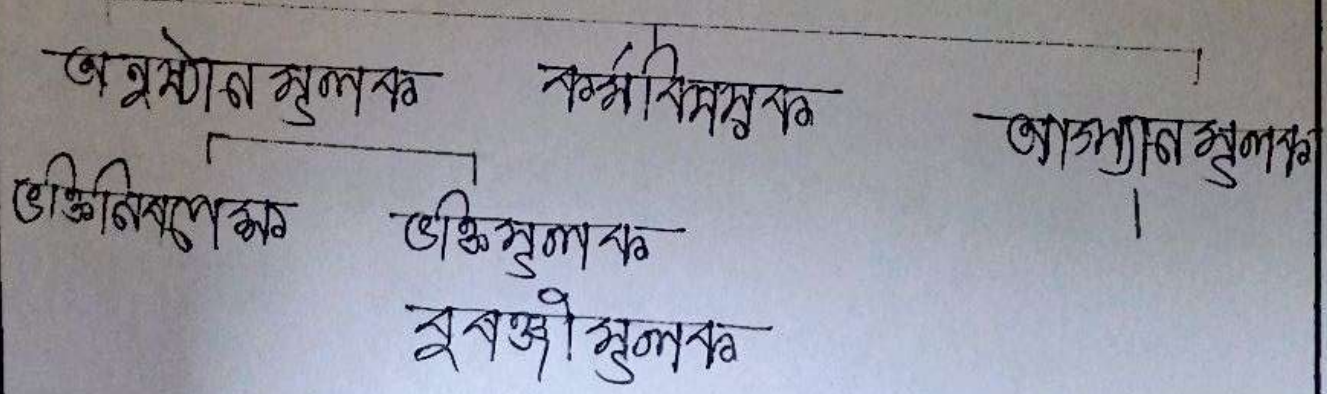 অনুষ্ঠান মূলক কৰ্মবিষয়ক আখ্যান মূলক
ভক্তিনিৰপেক্ষ ভক্তিমূলক
বুৰঞ্জীমূলক